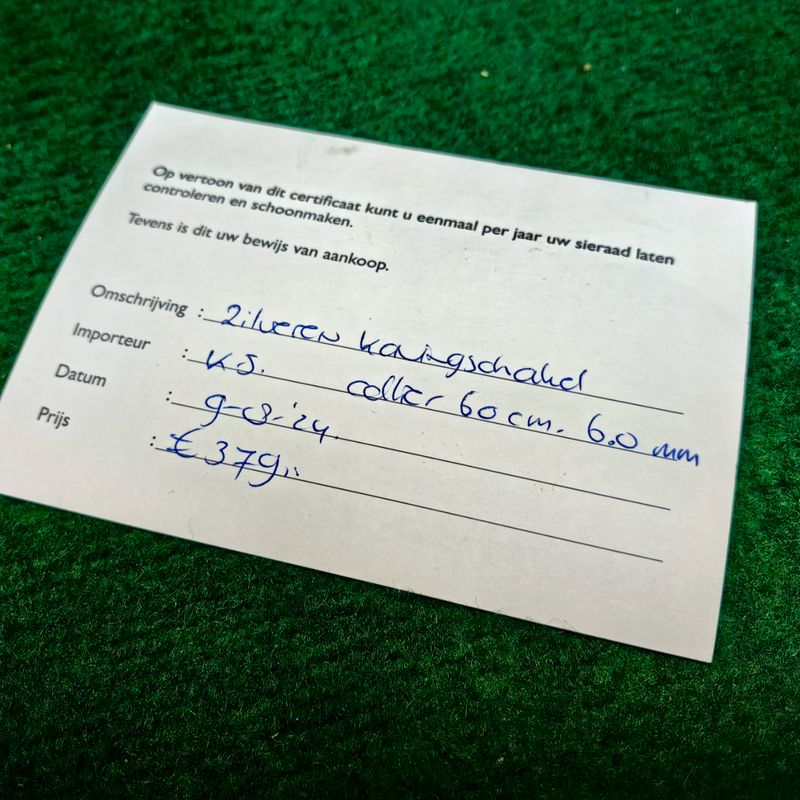 Op vertoon van dit certificaat kunt u eenmaal per jaar uw sieraad laten
controleren en schoonmaken.
Tevens is dit uw bewijs van aankoop.
Omschrijving : Zilveren koningschakel
Importeur : K.S. collier 60 cm. 6.0 mm
Datum :
Prijs : € 379,,